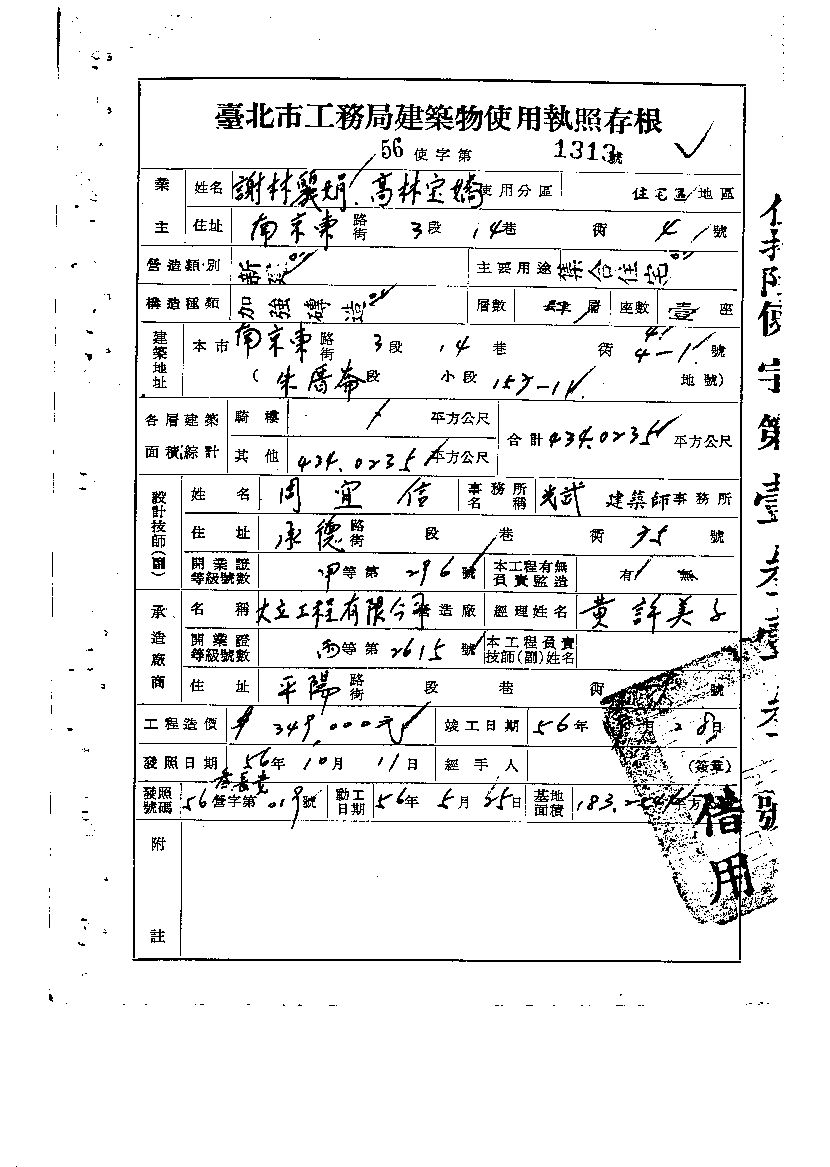 臺北市工務局建築物使用執照存根
56使字第1313號
業主 姓名 謝林 娟.高林宝嬌 使用分區 住宅區地區
住址 南京東路街 3段 14巷 衖 4號
營造類別 新建 主要用途 集合住宅
構造種類 加強磚造 層數 肆層 座數 壹座
建築地址 本市 南京東路街 3段 14巷 衖 4-1號
(朱厝崙段 小段 地號)
各層建築面積綜計 騎樓 / 平方公尺 合計434.0235平方公尺
其他 434.0235平方公尺
設計技師(副) 姓名 周宜信 事務所名稱 光武建築師事務所
住址 承德路街 段 巷 衖 35號
開業證等級號數 甲等第296號 本工程有無負責監造 有 無
承造廠商 名稱 大立工程有限公司營造廠 經理姓名 黃許美子
開業證等級號數 丙等第2615號 本工程負責技師(副)姓名
住址 平陽路街 段 巷 衖 號
工程造價 $349,000元 竣工日期 56年 月28日
發照日期 56年10月11日 經手人 (簽章)
發照號碼 56營字第019號 動工日期 56年5月25日 基地面積 183.25 平方
附註
借用
使字第壹叁壹叁號